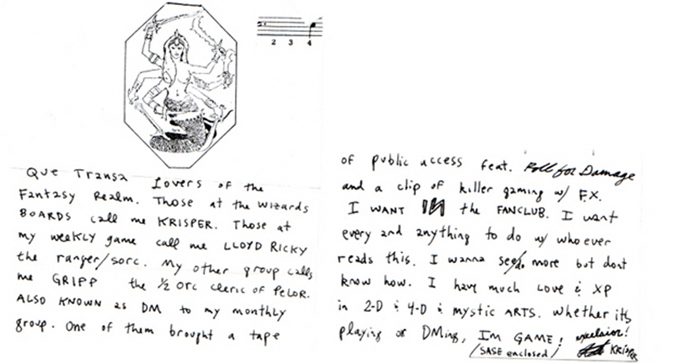 2 3 4
Que Transa Lovers of the
Fantasy Realm. Those at the Wizards
BOARDS call me KRISPER. Those at
my weekly game call me LLOYD RICKY
the ranger/sorc. My other group calls
me GRIPP the 1/2 orc cleric of PELOR.
ALSO KNOWN as DM to my monthly
group. One of them brought a tape
of public access feat. Roll for Damage
and a clip of killer gaming w/ F.X.
I WANT IN the FANCLUB. I want
every and anything to do w/ who ever
reads this. I wanna see more but dont
know how. I have much Love & XP
in 2-D & 4-D & mystic ARTS. Whether its
playing or DMing, IM GAME! excelsior!
(SASE enclosed) KRISPER